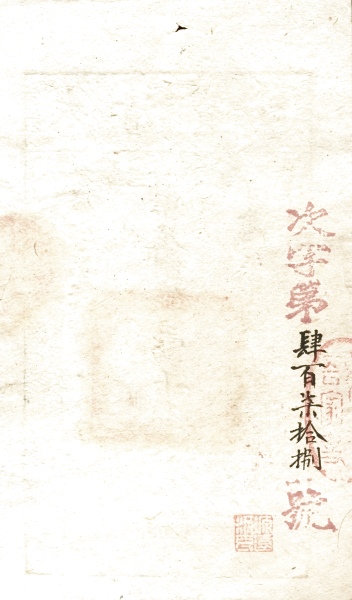 次字第肆百柒拾捌號